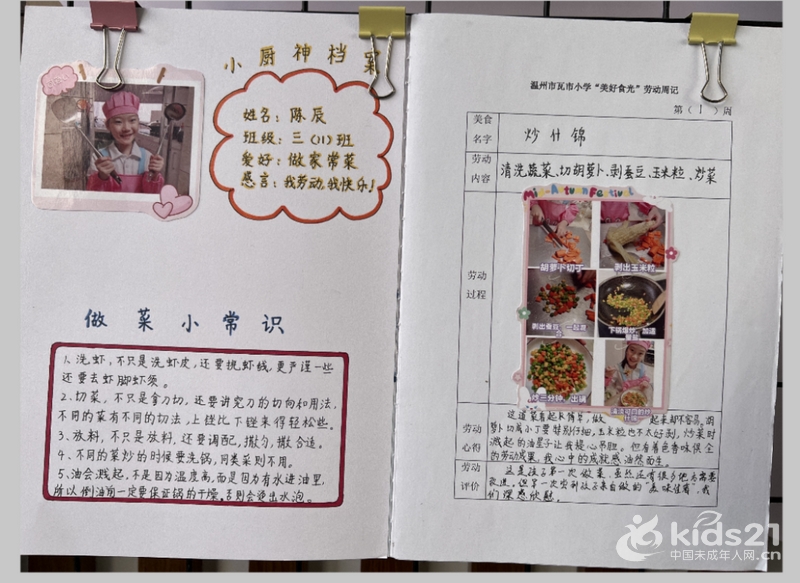 小厨神档案
姓名：陈辰
班级：三（11）班
爱好：做家常菜
感言：我劳动，我快乐！
做菜小常识
1、洗虾，不只是洗虾皮，还要挑虾线，更严谨一些
还要去虾脚虾须。
2、切菜，不只是拿刀切，还要讲究刀的切向和用法，
不同的菜有不同的切法，上搓比下搓来得轻松些。
3、放料，不只是放料，还要调配，撒匀，撒合适。
4、不同的菜炒的时候要洗锅，同类采则不用。
5、油会溅起，不是因为温度高，而是因为有水进油里，
所以倒油前一定要保证锅的干燥，否则会烫出水泡。
温州市瓦市小学“美好食光”劳动周记
第（1）周
美食
名字
炒什锦
劳动
内容
清洗蔬菜、切胡萝卜、剥蚕豆、玉米粒、炒菜
劳动
过程
Autumn Festival
胡萝卜切丁
剥出玉米粒
剥出蚕豆，一起混
下锅爆炒，加适
炒三分钟，出锅
清淡可口的炒
什锦
劳动
心得
这道菜看起来简单，做起来却不容易。胡
萝卜切成小丁要特别仔细，玉米粒也不太好剥，炒菜时
溅起的油星子让我提心吊胆。但看着色香味俱全
的劳动成果，我心中的成就感油然而生。
劳动
评价
这是孩子第一次做菜，虽然还有很多地方需要
改进，但第一次吃到孩子亲自做的“美味佳肴”，我
们深感欣慰。
kids21
中国未成年人网.cn